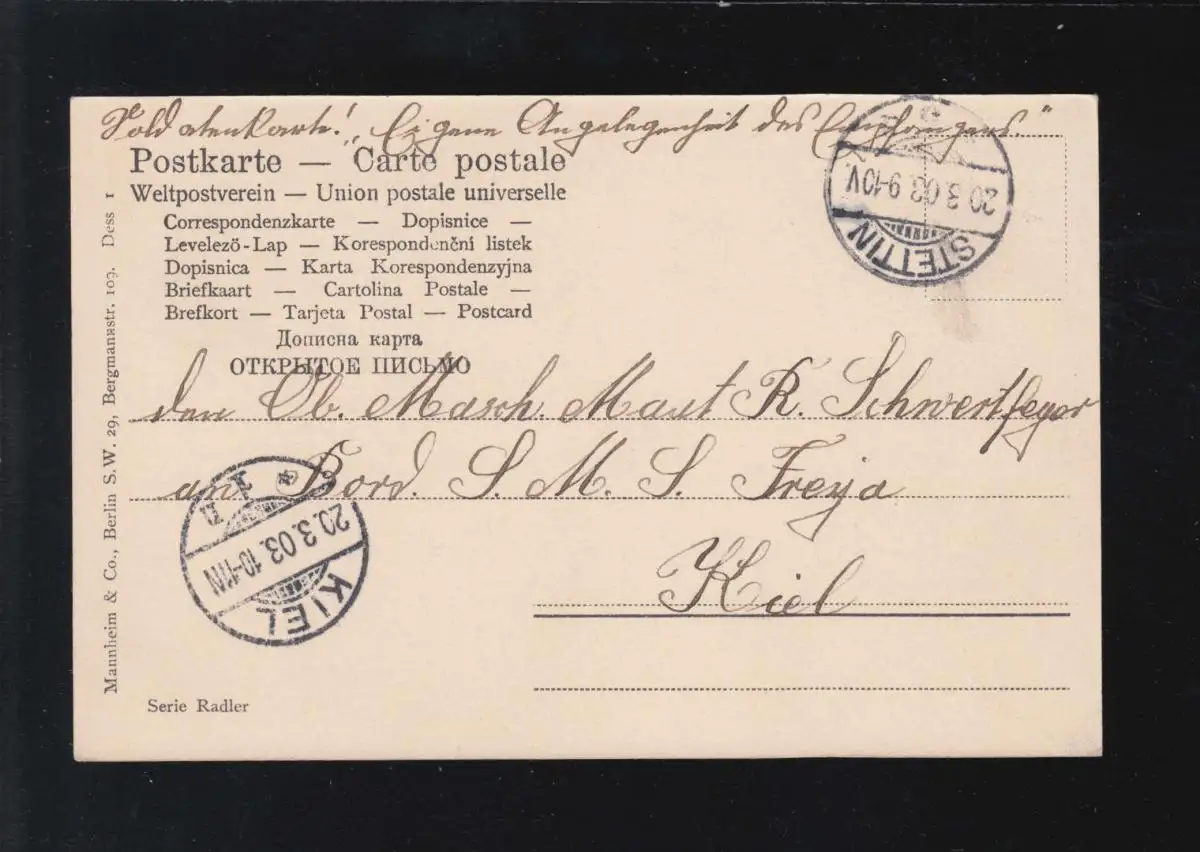 Soldatenkarte! „Eigene Angelegenheit des Empfängers."
Postkarte — Carte postale
Weltpostverein — Union postale universelle
Correspondenzkarte — Dopisnice —
Levelezö-Lap — Korespondenční listek
Dopisnica — Karta Korespondenzyjna
Briefkaart — Cartolina Postale —
Brefkort — Tarjeta Postal — Postcard
Дописна карта
ОТКРЫТОЕ ПИСЬМО
STETTIN
20.3.03.9-10V.
den Ob. Masch. Maat R. Schwertfeger
an Bord. S. M. S. Freya
Kiel
KIEL
20.3.03.10-11N
Mannheim & Co., Berlin S.W. 29, Bergmannstr. 109. Dess 1
Serie Radler